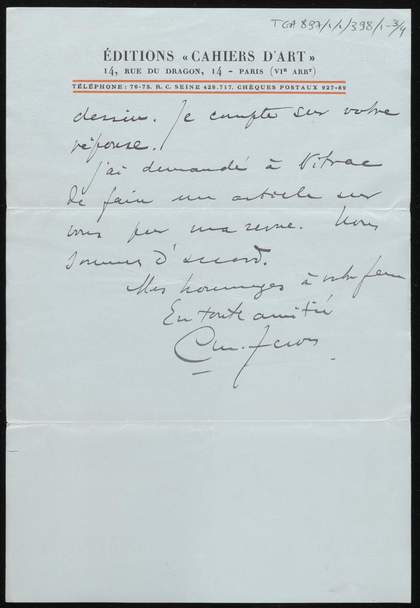 TGA 897/1/1/398/1-3/4
ÉDITIONS « CAHIERS D'ART »
14, RUE DU DRAGON, 14 - PARIS (VIᵉ ARRᵗ)
TÉLÉPHONE: 76-75. R. C. SEINE 429.717. CHÈQUES POSTAUX 927-69
dessin. Je compte sur votre
réponse.
J'ai demandé à Vitrac
de faire un article sur
vous pour ma revue. Nous
sommes d'accord.
Mes hommages à votre femme
En toute amitié
Chr. Zervos